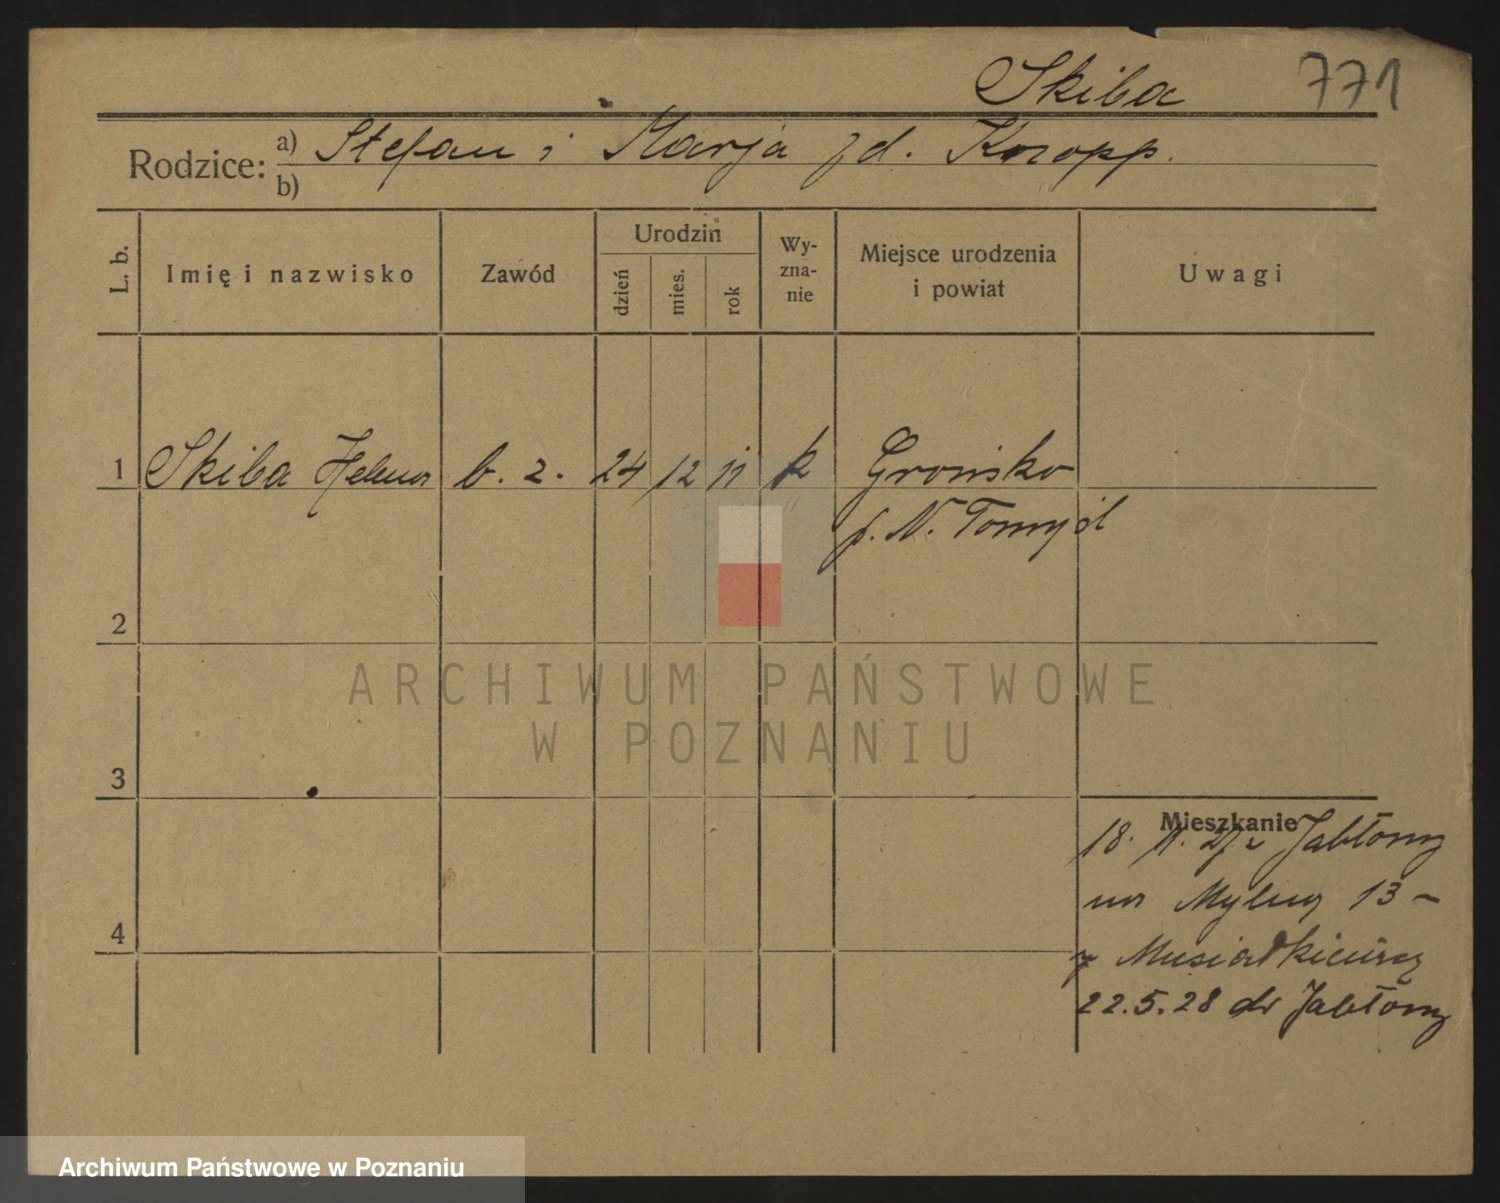 Skiba 771
Rodzice: a) Stefan i Marja zd. Knropp.
b)
L. b. Imię i nazwisko Zawód Urodzin dzień mies. rok Wyznanie Miejsce urodzenia i powiat Uwagi
1 Skiba Helena b. z. 24 12 11 k Grońsko
p. N. Tomyśl
2
3
4
Mieszkanie
18. 11. 27 z Jabłony
na Mylną 13 –
z
22.5.28 do Jabłony
ARCHIWUM PAŃSTWOWE
W POZNANIU
Archiwum Państwowe w Poznaniu